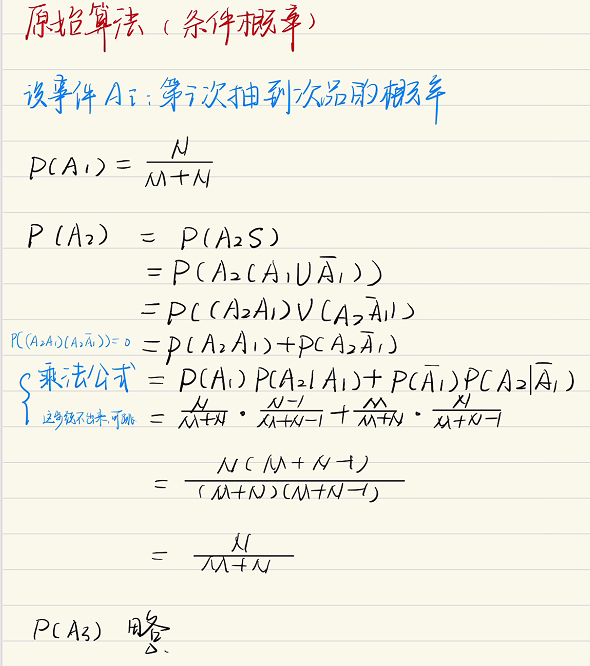 原始算法（条件概率）
设事件 Ai：第i次抽到次品的概率
P(A₁) = N/(M+N)
P(A₂) = P(A₂S)
= P(A₂(A₁∪A̅₁))
= P((A₂A₁)∪(A₂A̅₁))
P((A₂A₁)(A₂A̅₁))=0 = P(A₂A₁)+P(A₂A̅₁)
乘法公式 = P(A₁)P(A₂|A₁)+P(A̅₁)P(A₂|A̅₁)
= N/(M+N) · (N-1)/(M+N-1) + M/(M+N) · N/(M+N-1)
= N(M+N-1)/((M+N)(M+N-1))
= N/(M+N)
P(A₃) 略.